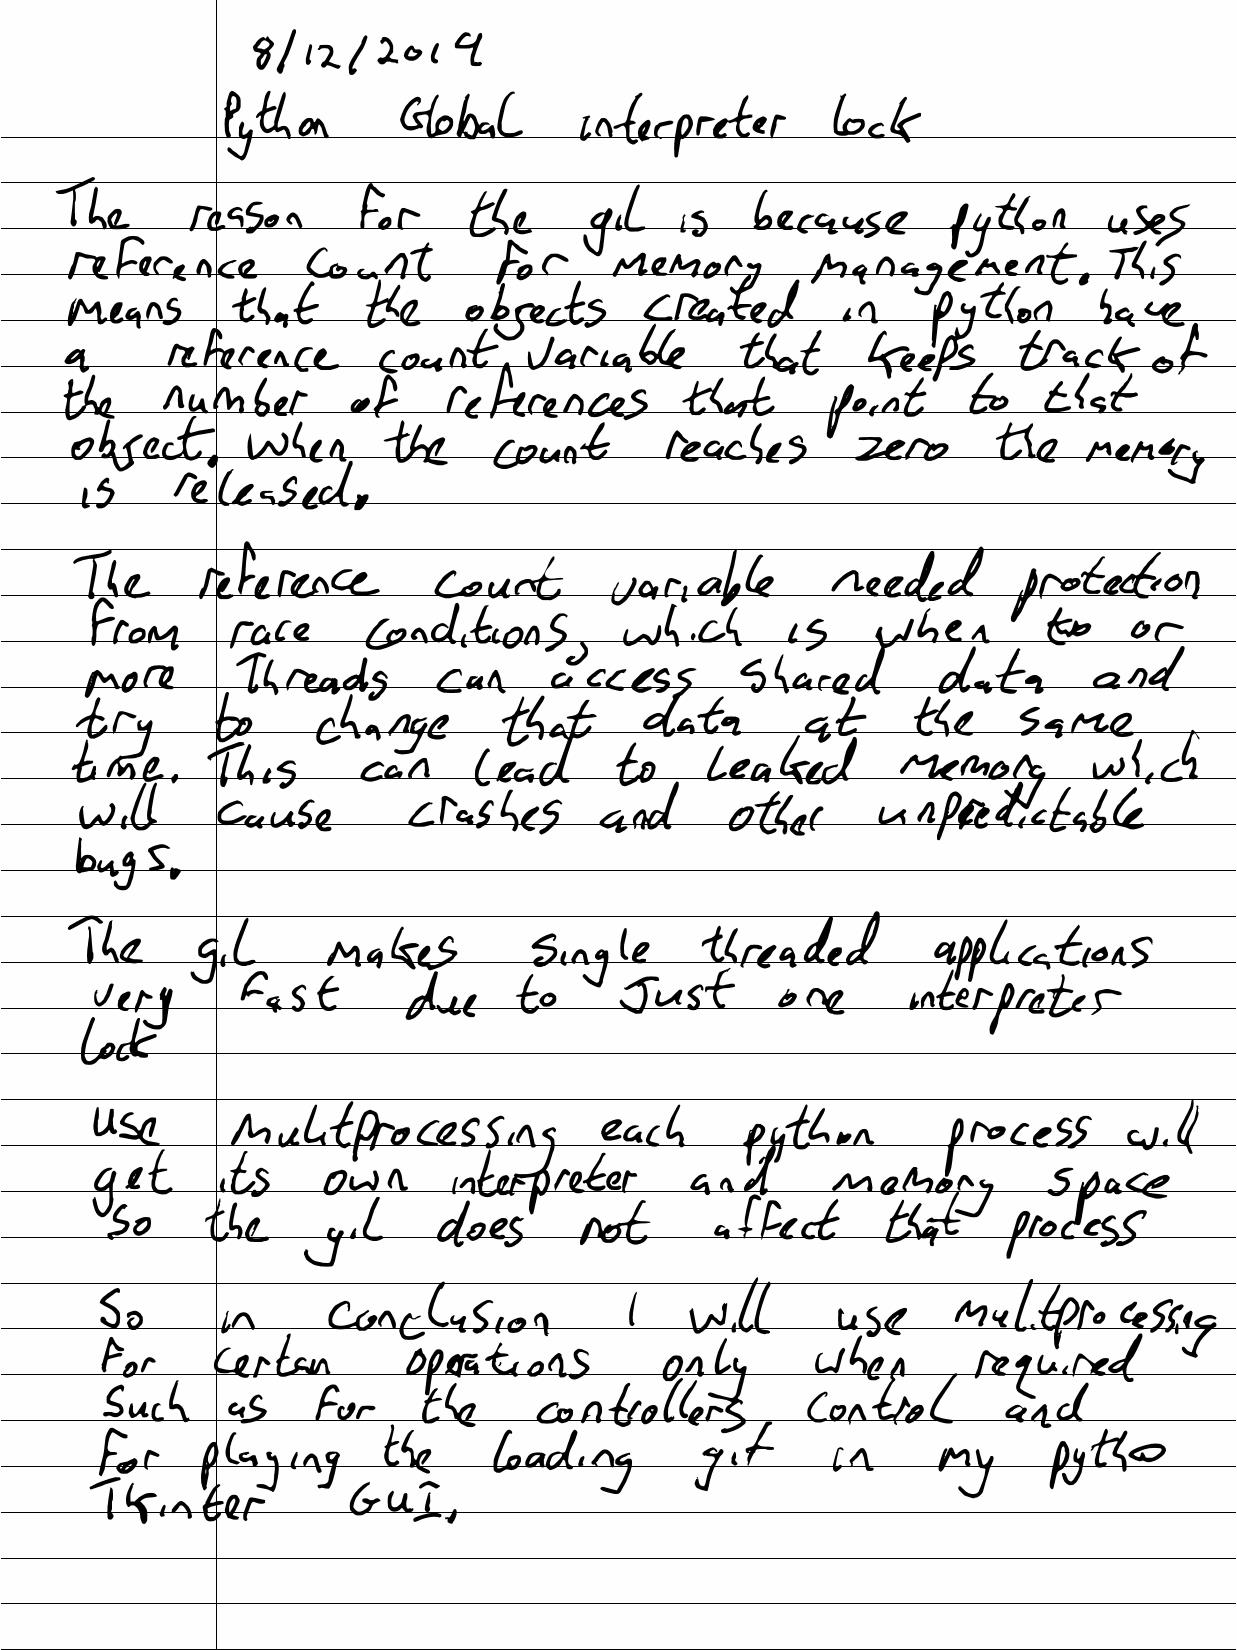 8/12/2019
Python Global interpreter lock
The reason for the gil is because python uses
reference count for memory management. This
means that the objects created in python have
a reference count variable that keeps track of
the number of references that point to that
object. When the count reaches zero the memory
is released.
The reference count variable needed protection
from race conditions, which is when two or
more threads can access shared data and
try to change that data at the same
time. This can lead to leaked memory which
will cause crashes and other unpredictable
bugs.
The gil makes single threaded applications
very fast due to just one interpreter
lock
use mulitprocessing each python process will
get its own interpreter and memory space
so the gil does not affect that process
So in conclusion I will use mulitprocessing
for certan operations only when required
such as for the controllers control and
for playing the loading gif in my pytho
Tkinter GUI.